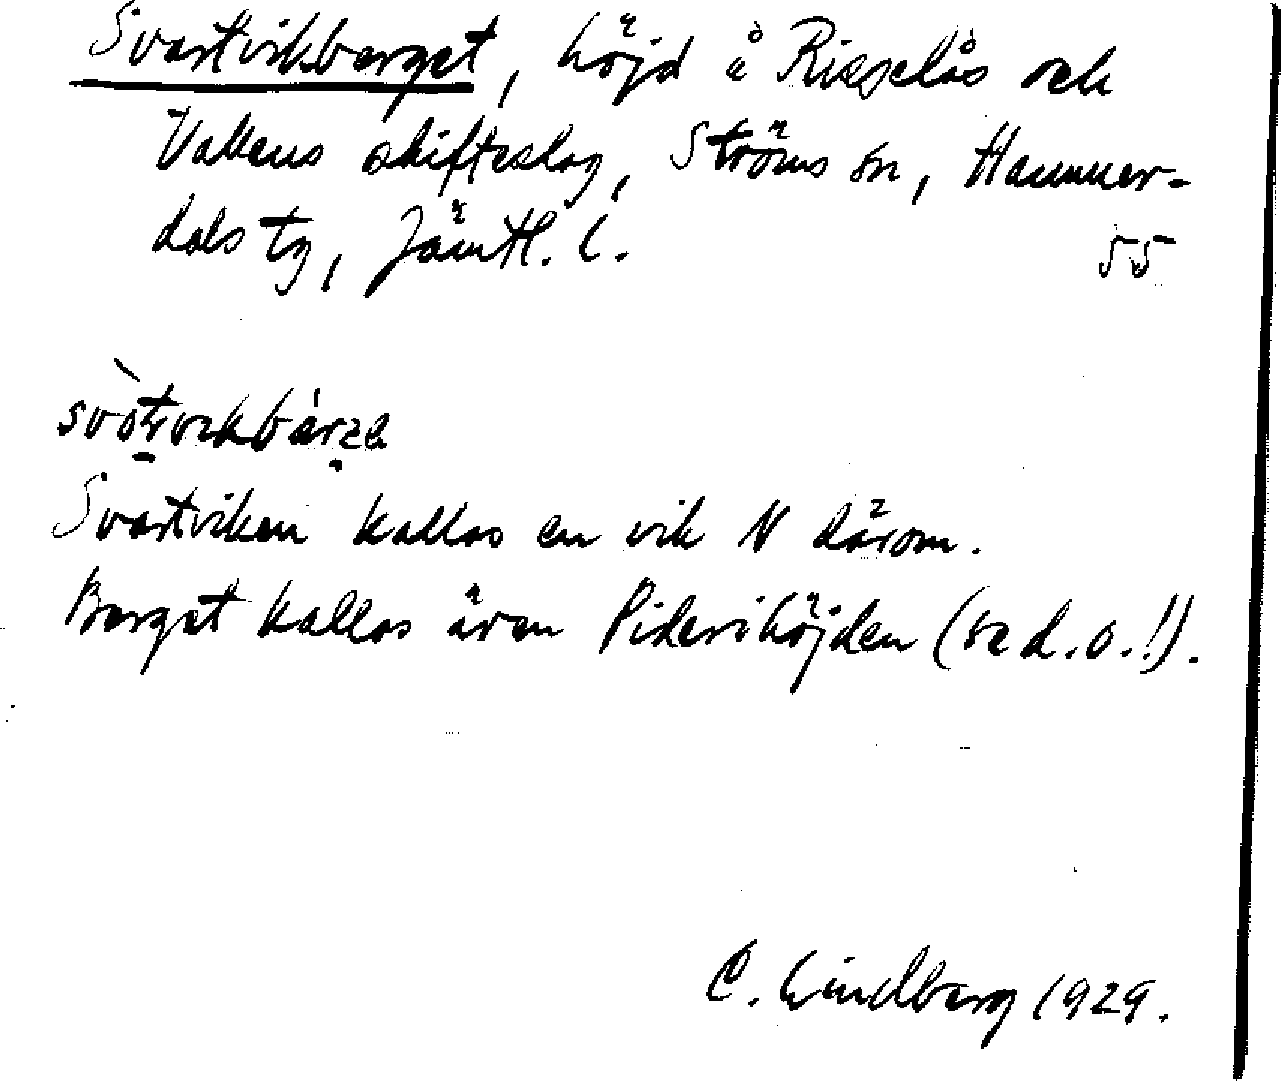 Svartvikberget, höjd å Risselås och
Vallens skifteslag, Ströms sn, Hammer-
dals tg, Jämtl. l.
55
Svartviken kallas en vik N därom.
Berget kallas även Piderihöjden (se d. o.!).
C. Lindberg 1929.